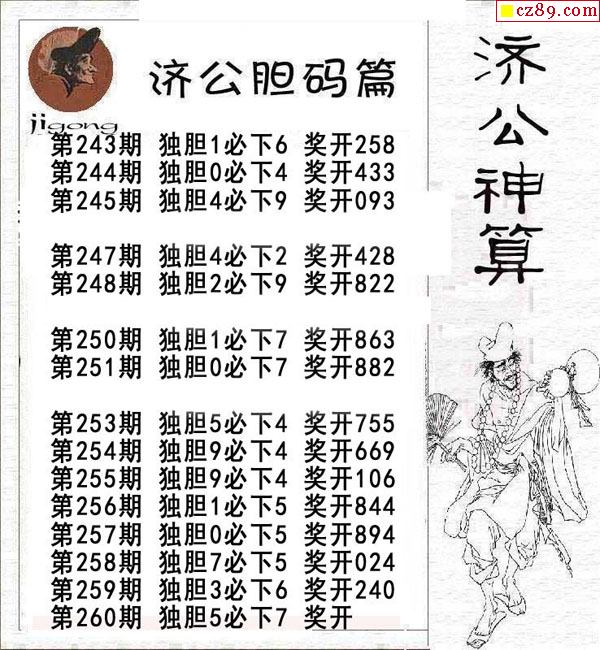 cz89.com
济公胆码篇
jigong
第243期 独胆1必下6 奖开258
第244期 独胆0必下4 奖开433
第245期 独胆4必下9 奖开093
第247期 独胆4必下2 奖开428
第248期 独胆2必下9 奖开822
第250期 独胆1必下7 奖开863
第251期 独胆0必下7 奖开882
第253期 独胆5必下4 奖开755
第254期 独胆9必下4 奖开669
第255期 独胆9必下4 奖开106
第256期 独胆1必下5 奖开844
第257期 独胆0必下5 奖开894
第258期 独胆7必下5 奖开024
第259期 独胆3必下6 奖开240
第260期 独胆5必下7 奖开
济公神算